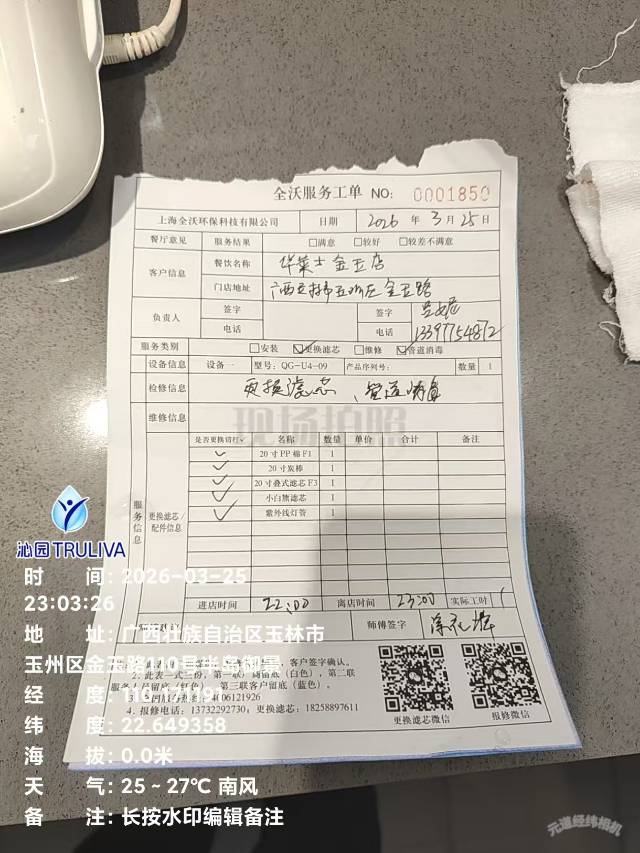 全沃服务工单 NO: 0001850
上海全沃环保科技有限公司 日期 2026 年 3 月 25 日
餐厅意见 服务结果 □满意 □较好 □较差不满意
客户信息 餐饮名称 华莱士金玉店
门店地址 广西玉林市玉州区金玉路
负责人 签字 签字
电话 电话 13397754872
服务类别 □安装 ☑更换滤芯 □维修 ☑管道消毒
设备信息 设备一 型号: QG-U4-09 产品序列号: 数量 1
检修信息 更换滤芯、管道消毒
维修信息
现场拍照
服务信息 更换滤芯/配件信息
是否更换切打✓ 名称 数量 单价 合计 备注
✓ 20寸PP棉F1 1
✓ 20寸炭棒 1
✓ 20寸叠式滤芯F3 1
✓ 小白旗滤芯 1
✓ 紫外线灯管 1
进店时间 22:00 离店时间 23:00 实际工时 1
师傅签字
客户签字确认。
2.此表一式三份,第一联厂商留底(白色),第二联
服务人员留底(红色),第三联客户留底(蓝色)。
4.报修电话:13732292730;更换滤芯:18258897611
更换滤芯微信 报修微信
沁园TRULIVA
时 间: 2026-03-25
23:03:26
地 址: 广西壮族自治区玉林市
玉州区金玉路110号半岛御景
经 度: 110.171191
纬 度: 22.649358
海 拔: 0.0米
天 气: 25~27℃ 南风
备 注: 长按水印编辑备注
元道经纬相机